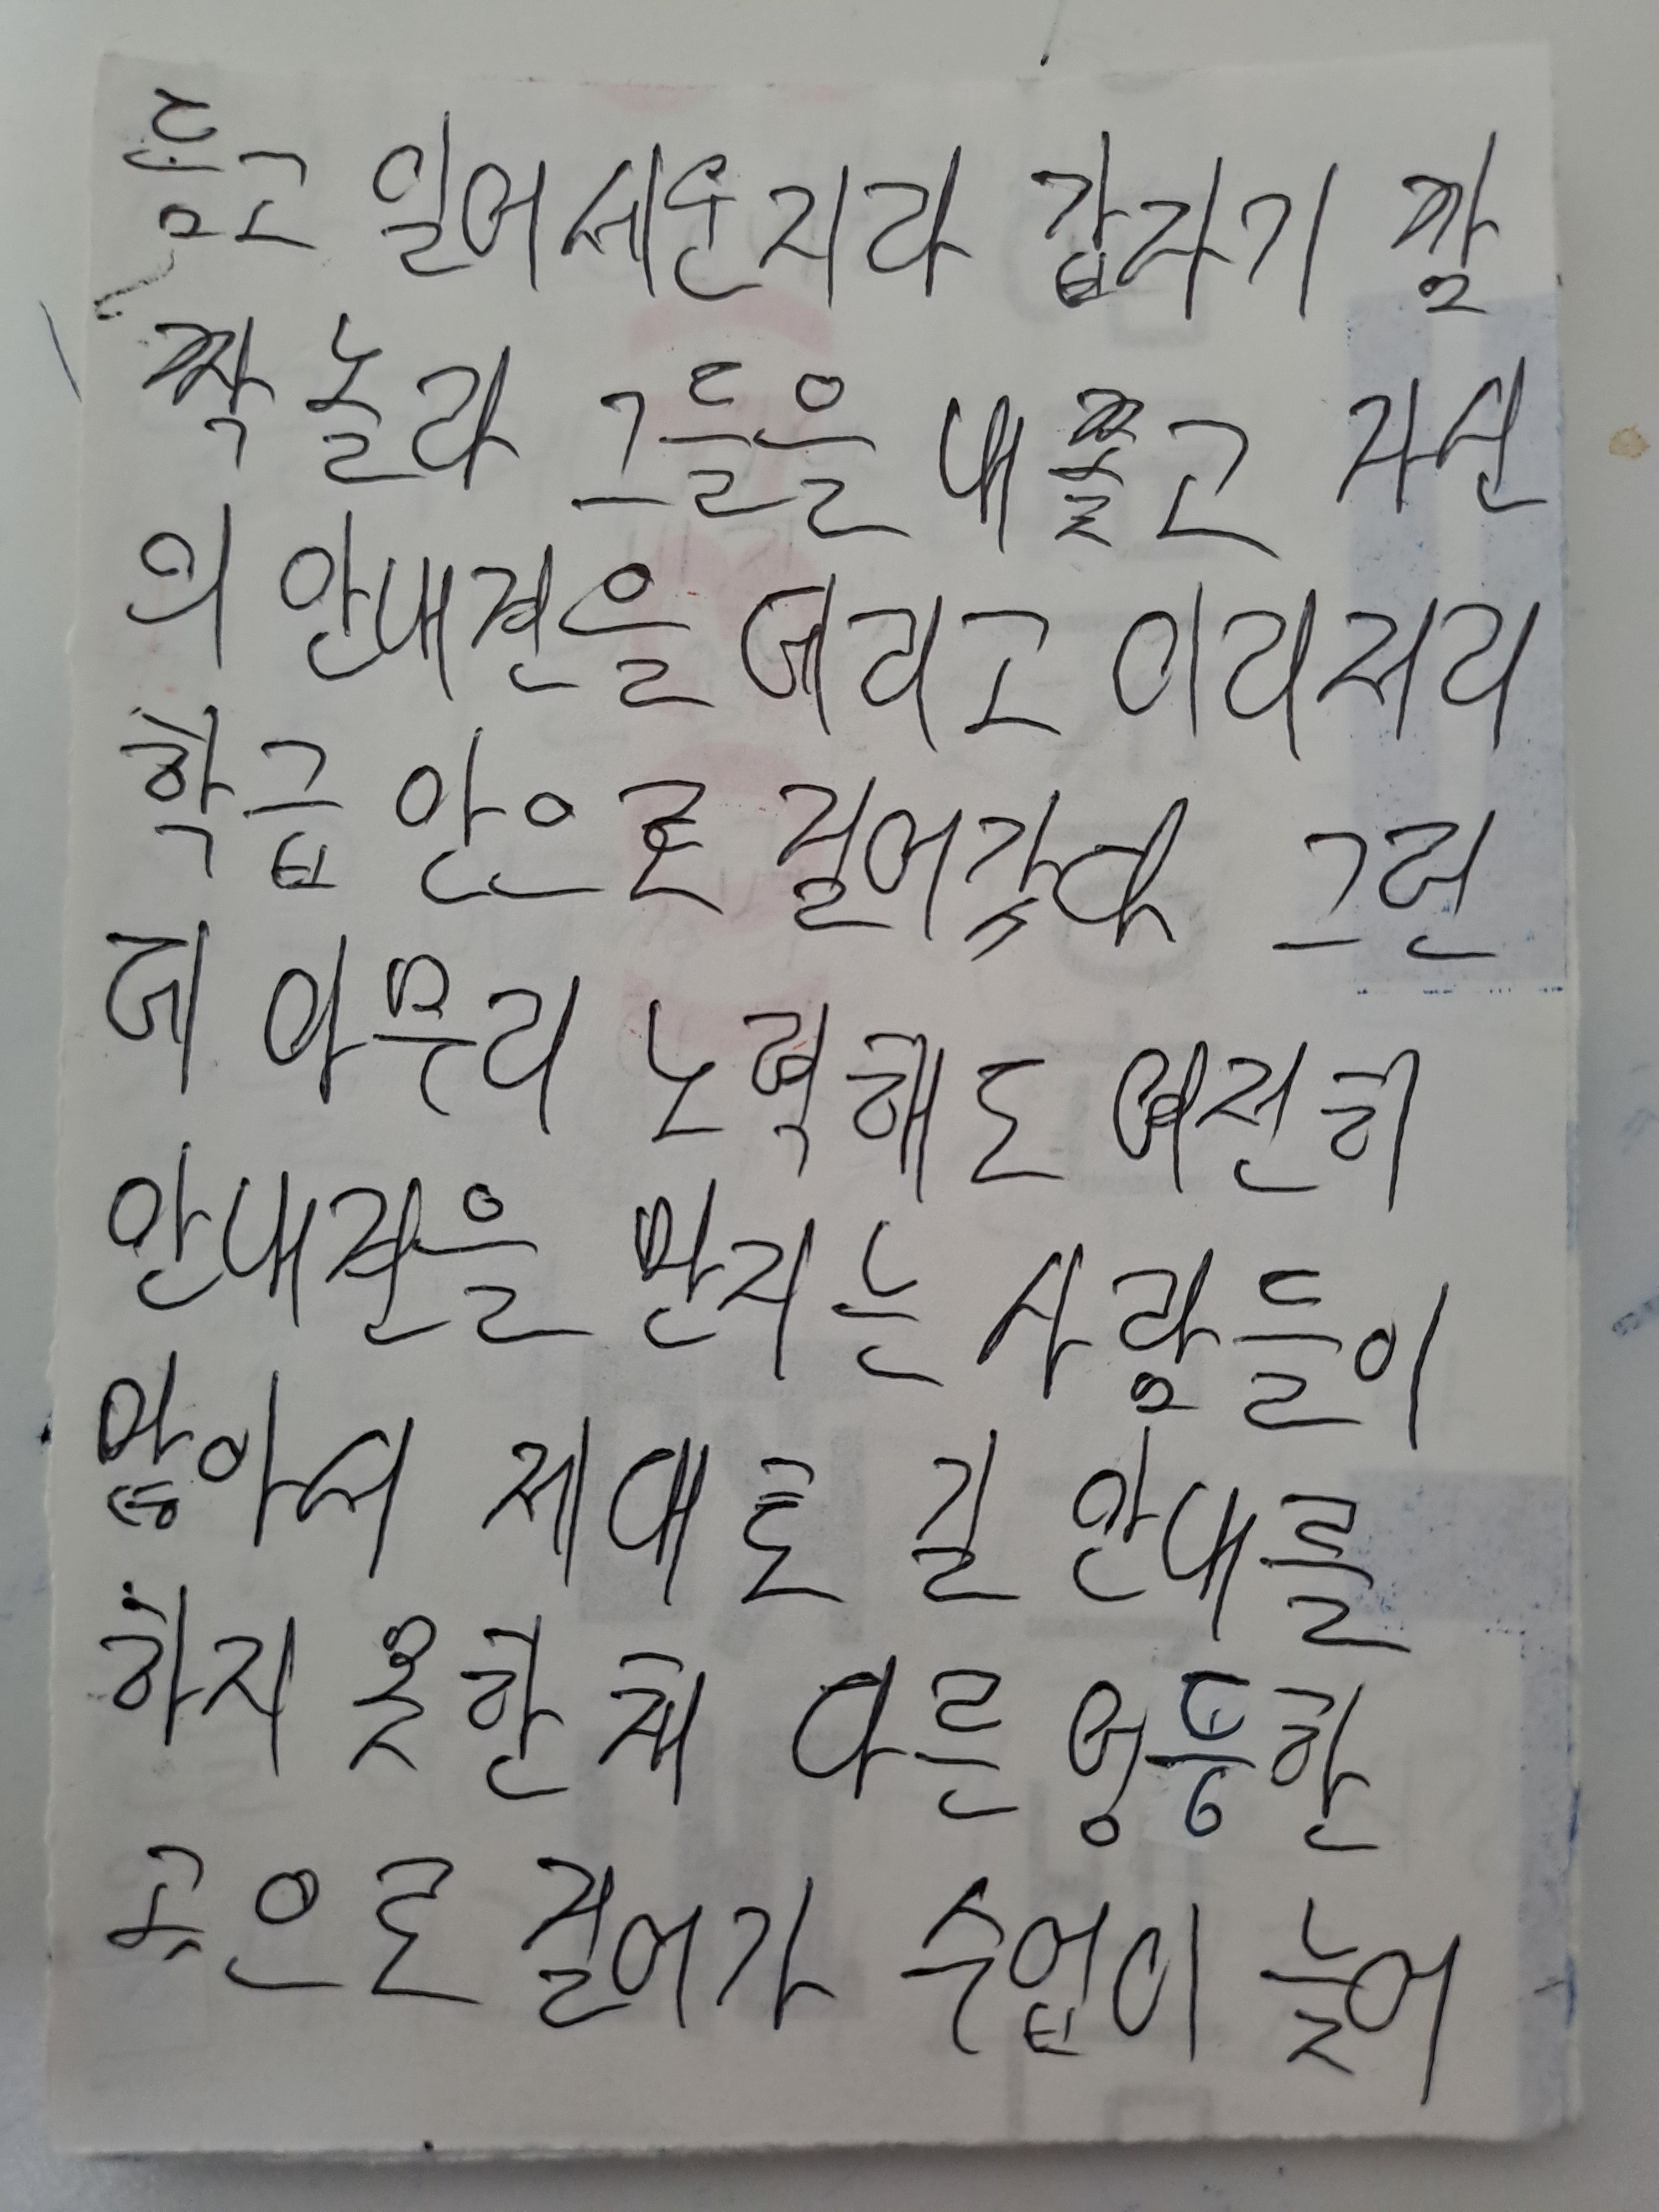 듬고 일어세운지라 갑자기 깜
짝 놀라 그들을 내쫓고 자신
의 안내견을 데리고 이리저리
학급 안으로 걸어갔다 그런
데 아무리 노력해도 여전히
안내견을 만지는 사람들이
많아서 제대로 길 안내를
하지 못한 채 다른 엉뚱한
곳으로 걸어가 수업이 늦어